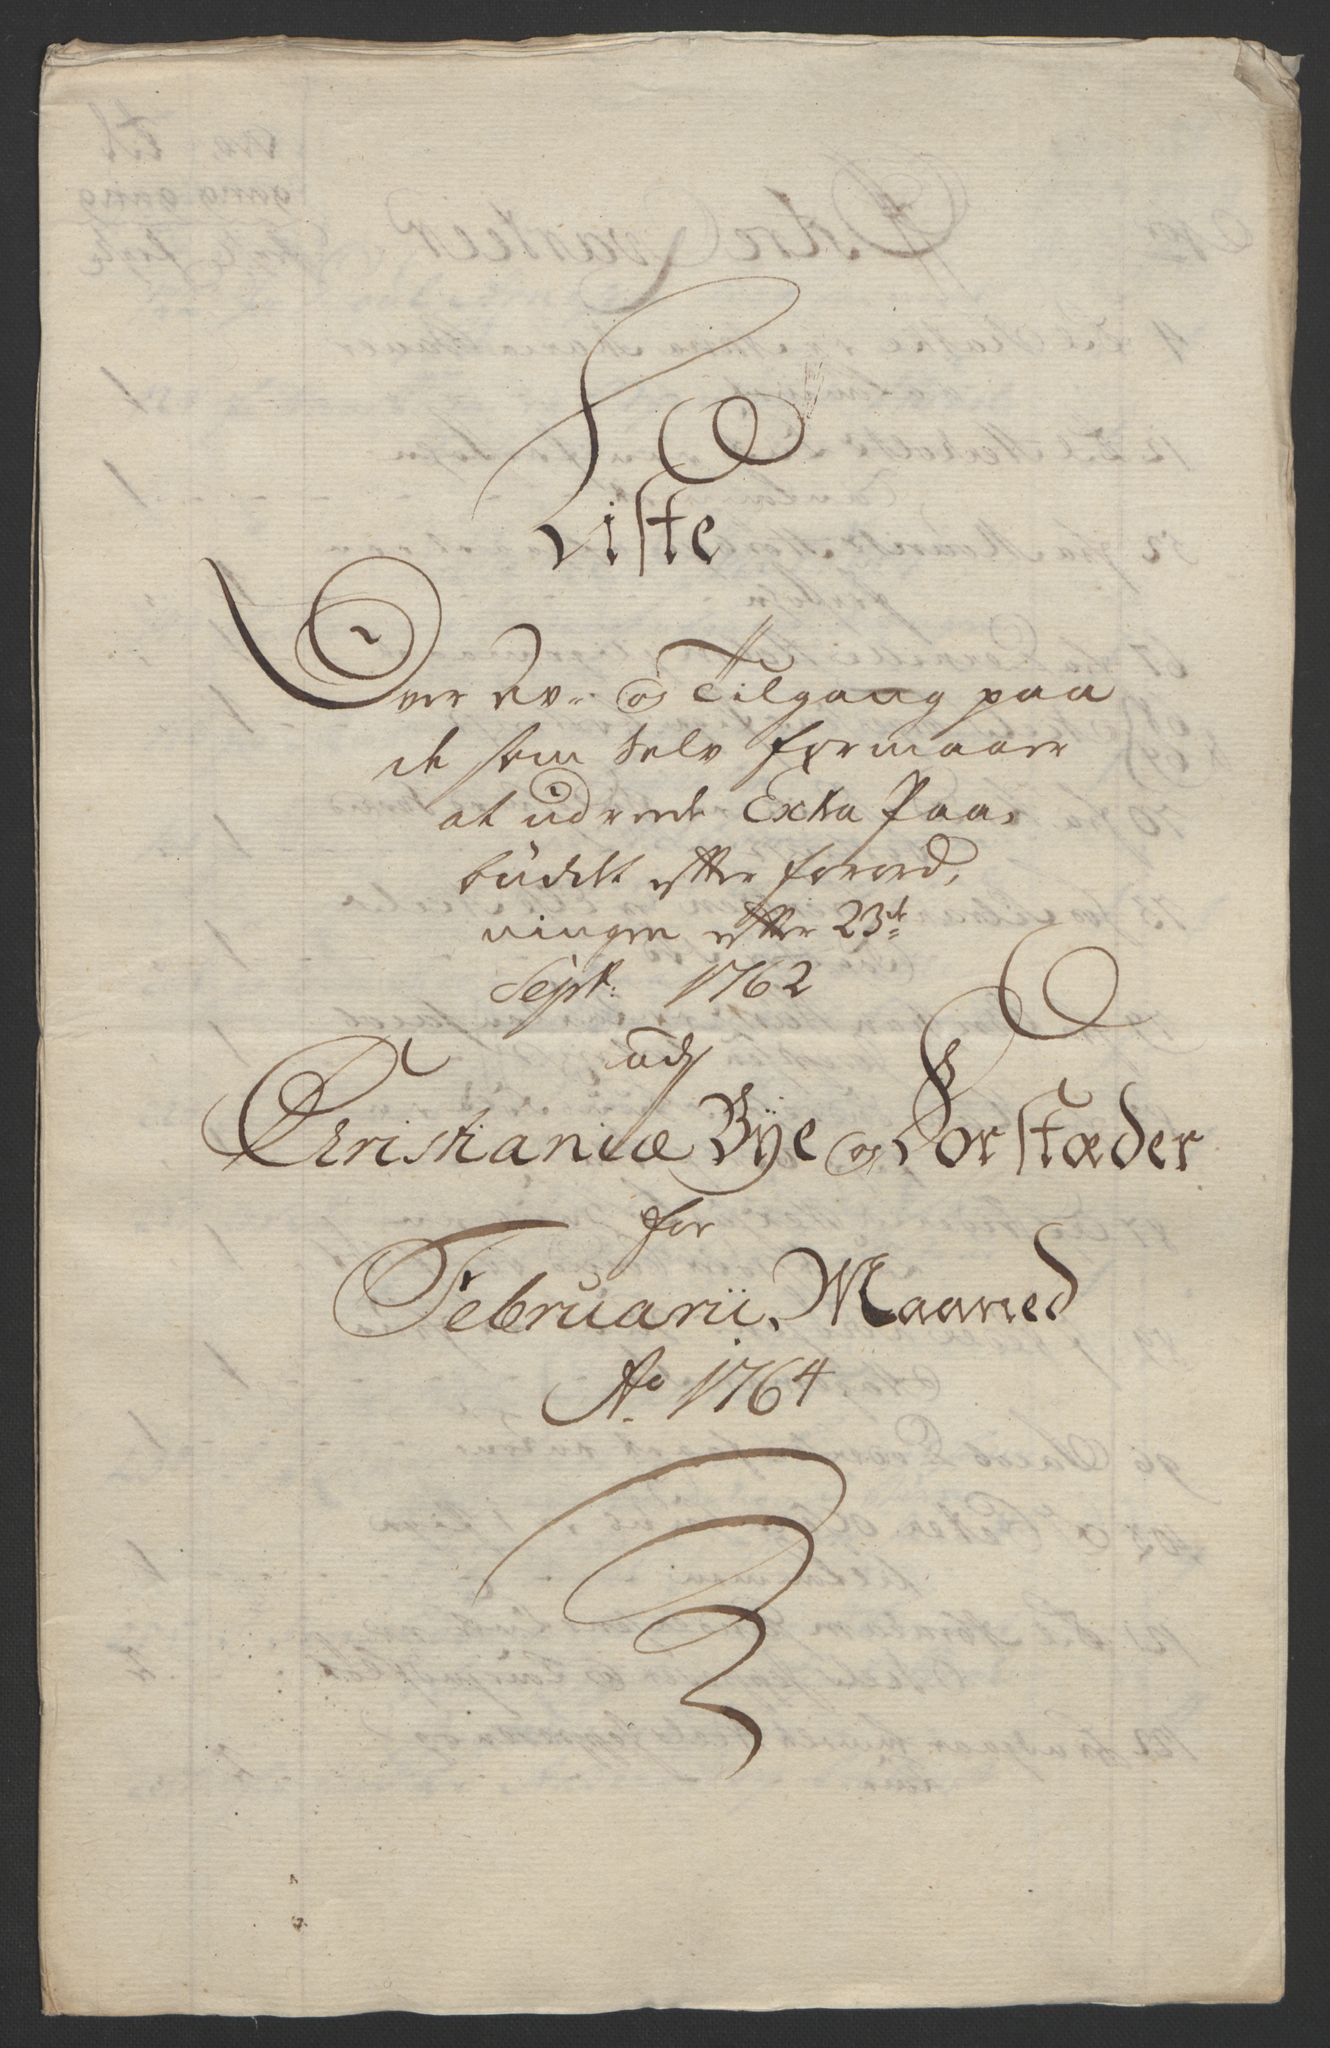 Liste
Over Av- og Tilgang paa
de som Selv formaaer
at udreede Extra Paa,
budet efter forord,
ningen efter 23de
Sept: 1762
udj
Christianiæ Bÿe og Forstæder
for
Februarii Maaned
Ao 1764